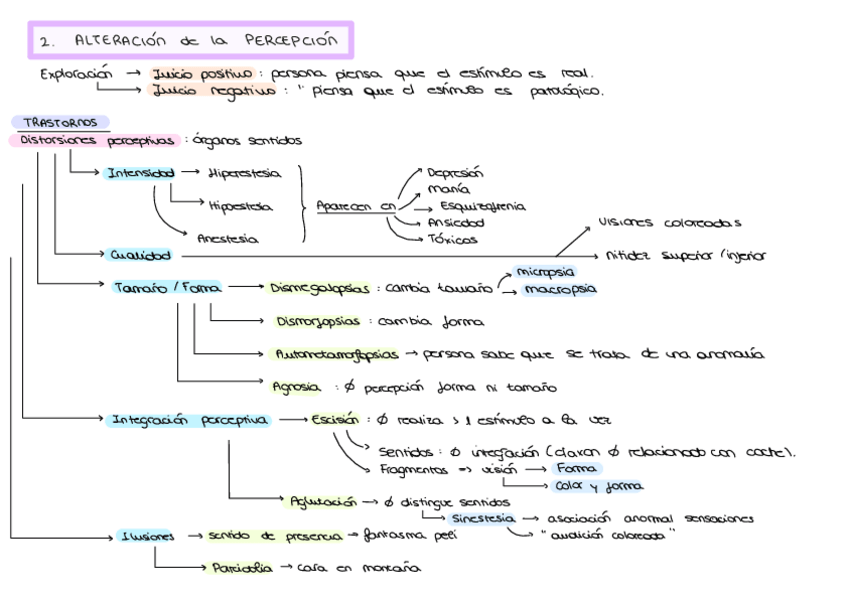 2. ALTERACIÓN de la PERCEPCIÓN
Exploración → Juicio positivo : persona piensa que el estímulo es real.
→ Juicio negativo : " piensa que el estímulo es patológico.
TRASTORNOS
Distorsiones perceptivas : órganos sentidos
Intensidad → Hiperestesia
Hipoestesia
Anestesia
Aparecen en
Depresión
manía
Esquizofrenia
Ansiedad
Tóxicos
Cualidad
visiones coloreadas
nitidez superior/inferior
Tamaño / Forma → Dismegalopsias : cambia tamaño
micropsia
macropsia
Dismorfopsias : cambia forma
Autometamorfopsias → persona sabe que se trata de una anomalía
Agnosia : ∅ percepción forma ni tamaño
Integración perceptiva → Escisión : ∅ realiza > 1 estímulo a la vez
Sentidos : ∅ integración (claxon ∅ relacionado con coche).
Fragmentos => visión → Forma
Color y forma
Aglutación → ∅ distingue sentidos
Sinestesia → asociación anormal sensaciones
"audición coloreada"
Ilusiones → sentido de presencia → fantasma peli
Pareidolia → cara en montaña